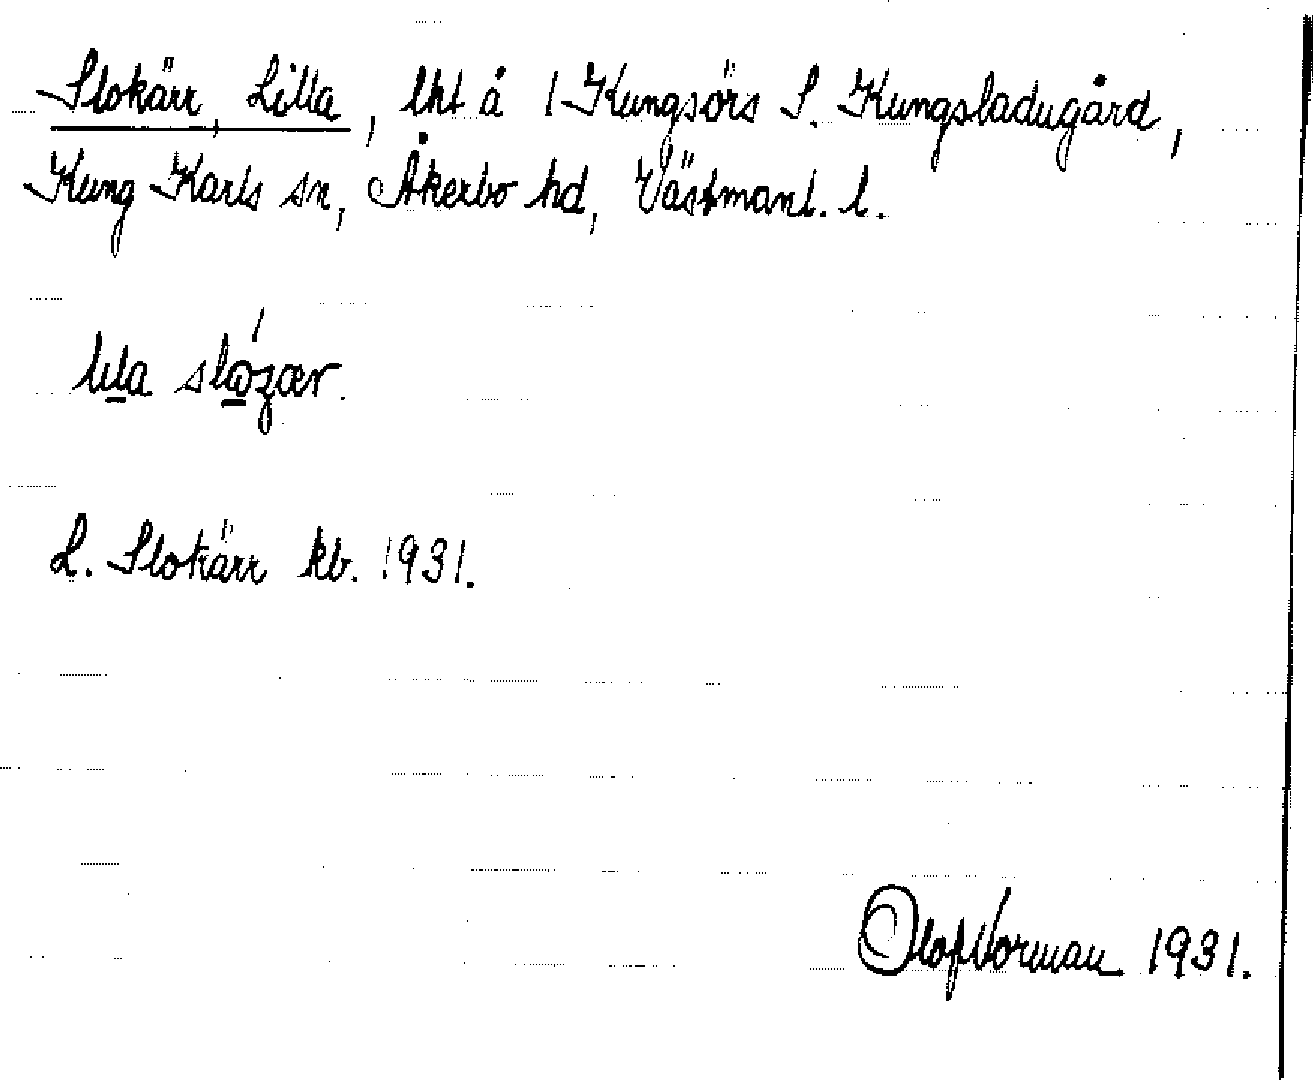 Slokärr, Lilla, lht å 1 Kungsörs S. Kungsladugård,
Kung Karls sn, Åkerbo hd, Västmanl. l.
lıla
L. Slokärr kb. 1931.
Olof Norman 1931.